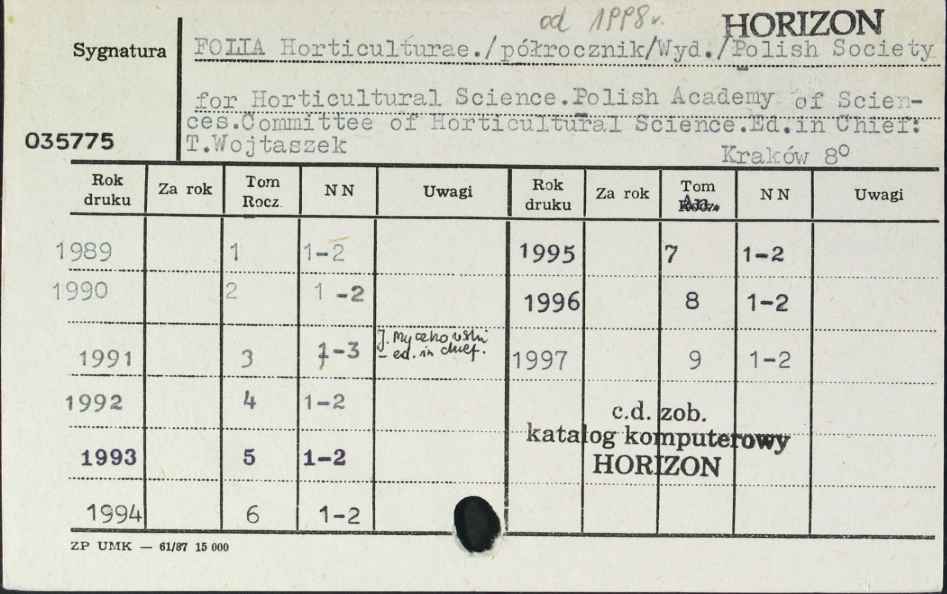 od 1998r.
HORIZON
Sygnatura
FOLIA Horticulturae./półrocznik/Wyd./Polish Society
for Horticultural Science.Polish Academy of Scien-
ces.Committee of Horticultural Science.Ed.in Chief:
035775
T.Wojtaszek Kraków 8°
Rok druku Za rok Tom Rocz. NN Uwagi Rok druku Za rok Tom An. NN Uwagi
1989 1 1-2 1995 7 1-2
1990 2 1-2 1996 8 1-2
1991 3 1-3 J. Myczkowski - ed. in chief. 1997 9 1-2
1992 4 1-2
c.d. zob.
katalog komputerowy
1993 5 1-2
HORIZON
1994 6 1-2
ZP UMK — 61/87 15 000